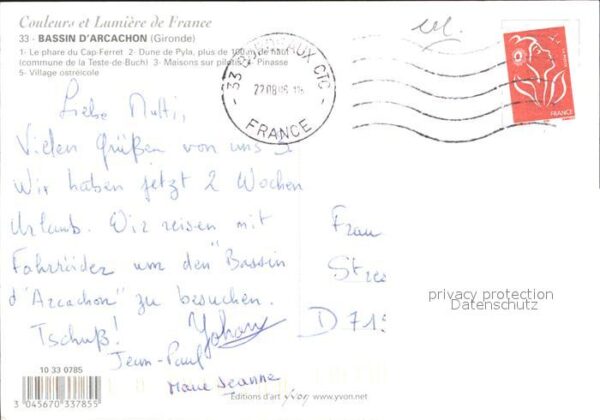 Couleurs et Lumière de France
33 - BASSIN D'ARCACHON (Gironde)
1- Le phare du Cap-Ferret 2- Dune de Pyla, plus de 100 m de haut
(commune de la Teste-de-Buch) 3- Maisons sur pilotis 4- Pinasse
5- Village ostréicole
33 BORDEAUX CTC
FRANCE
FRANCE
Liebe Mutti,
Vielen Grüßen von uns 3
Wir haben jetzt 2 Wochen
Urlaub. Wir reisen mit
Fahrräder um den "Bassin
d'Arcachon" zu besuchen.
Tschuß! Yohan
Jean-Paul
Marie Jeanne
Frau
D 71
privacy protection
Datenschutz
10 33 0785
3 045670 337855
Editions d'art yvon www.yvon.net